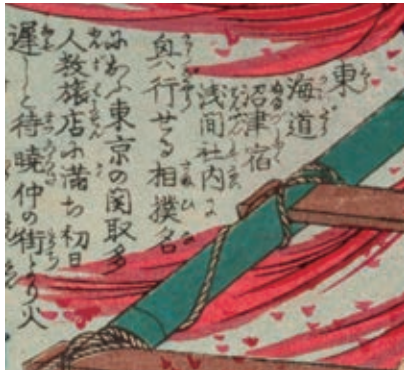 東
海道
沼津宿
浅間社内に
興行せる相撲名
におふ東京の関取多
人数旅店に満ち初日
遅しと待暁仲の街より火